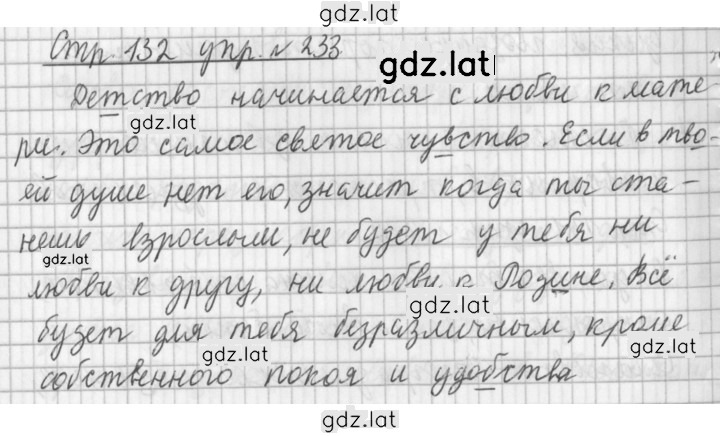 gdz.lat
Стр. 132 упр. № 233
gdz.lat
Детство начинается с любви к мате
gdz.lat
ри. Это самое светое чувство. Если в тво-
ей душе нет его, значит когда ты ста-
нешь взрослым, не будет у тебя ни
gdz.lat
любви к другу, ни любви к Родине. Всё
gdz.lat
будет для тебя безразличным, кроме
gdz.lat
gdz.lat
собственного покоя и удобства
gdz.lat